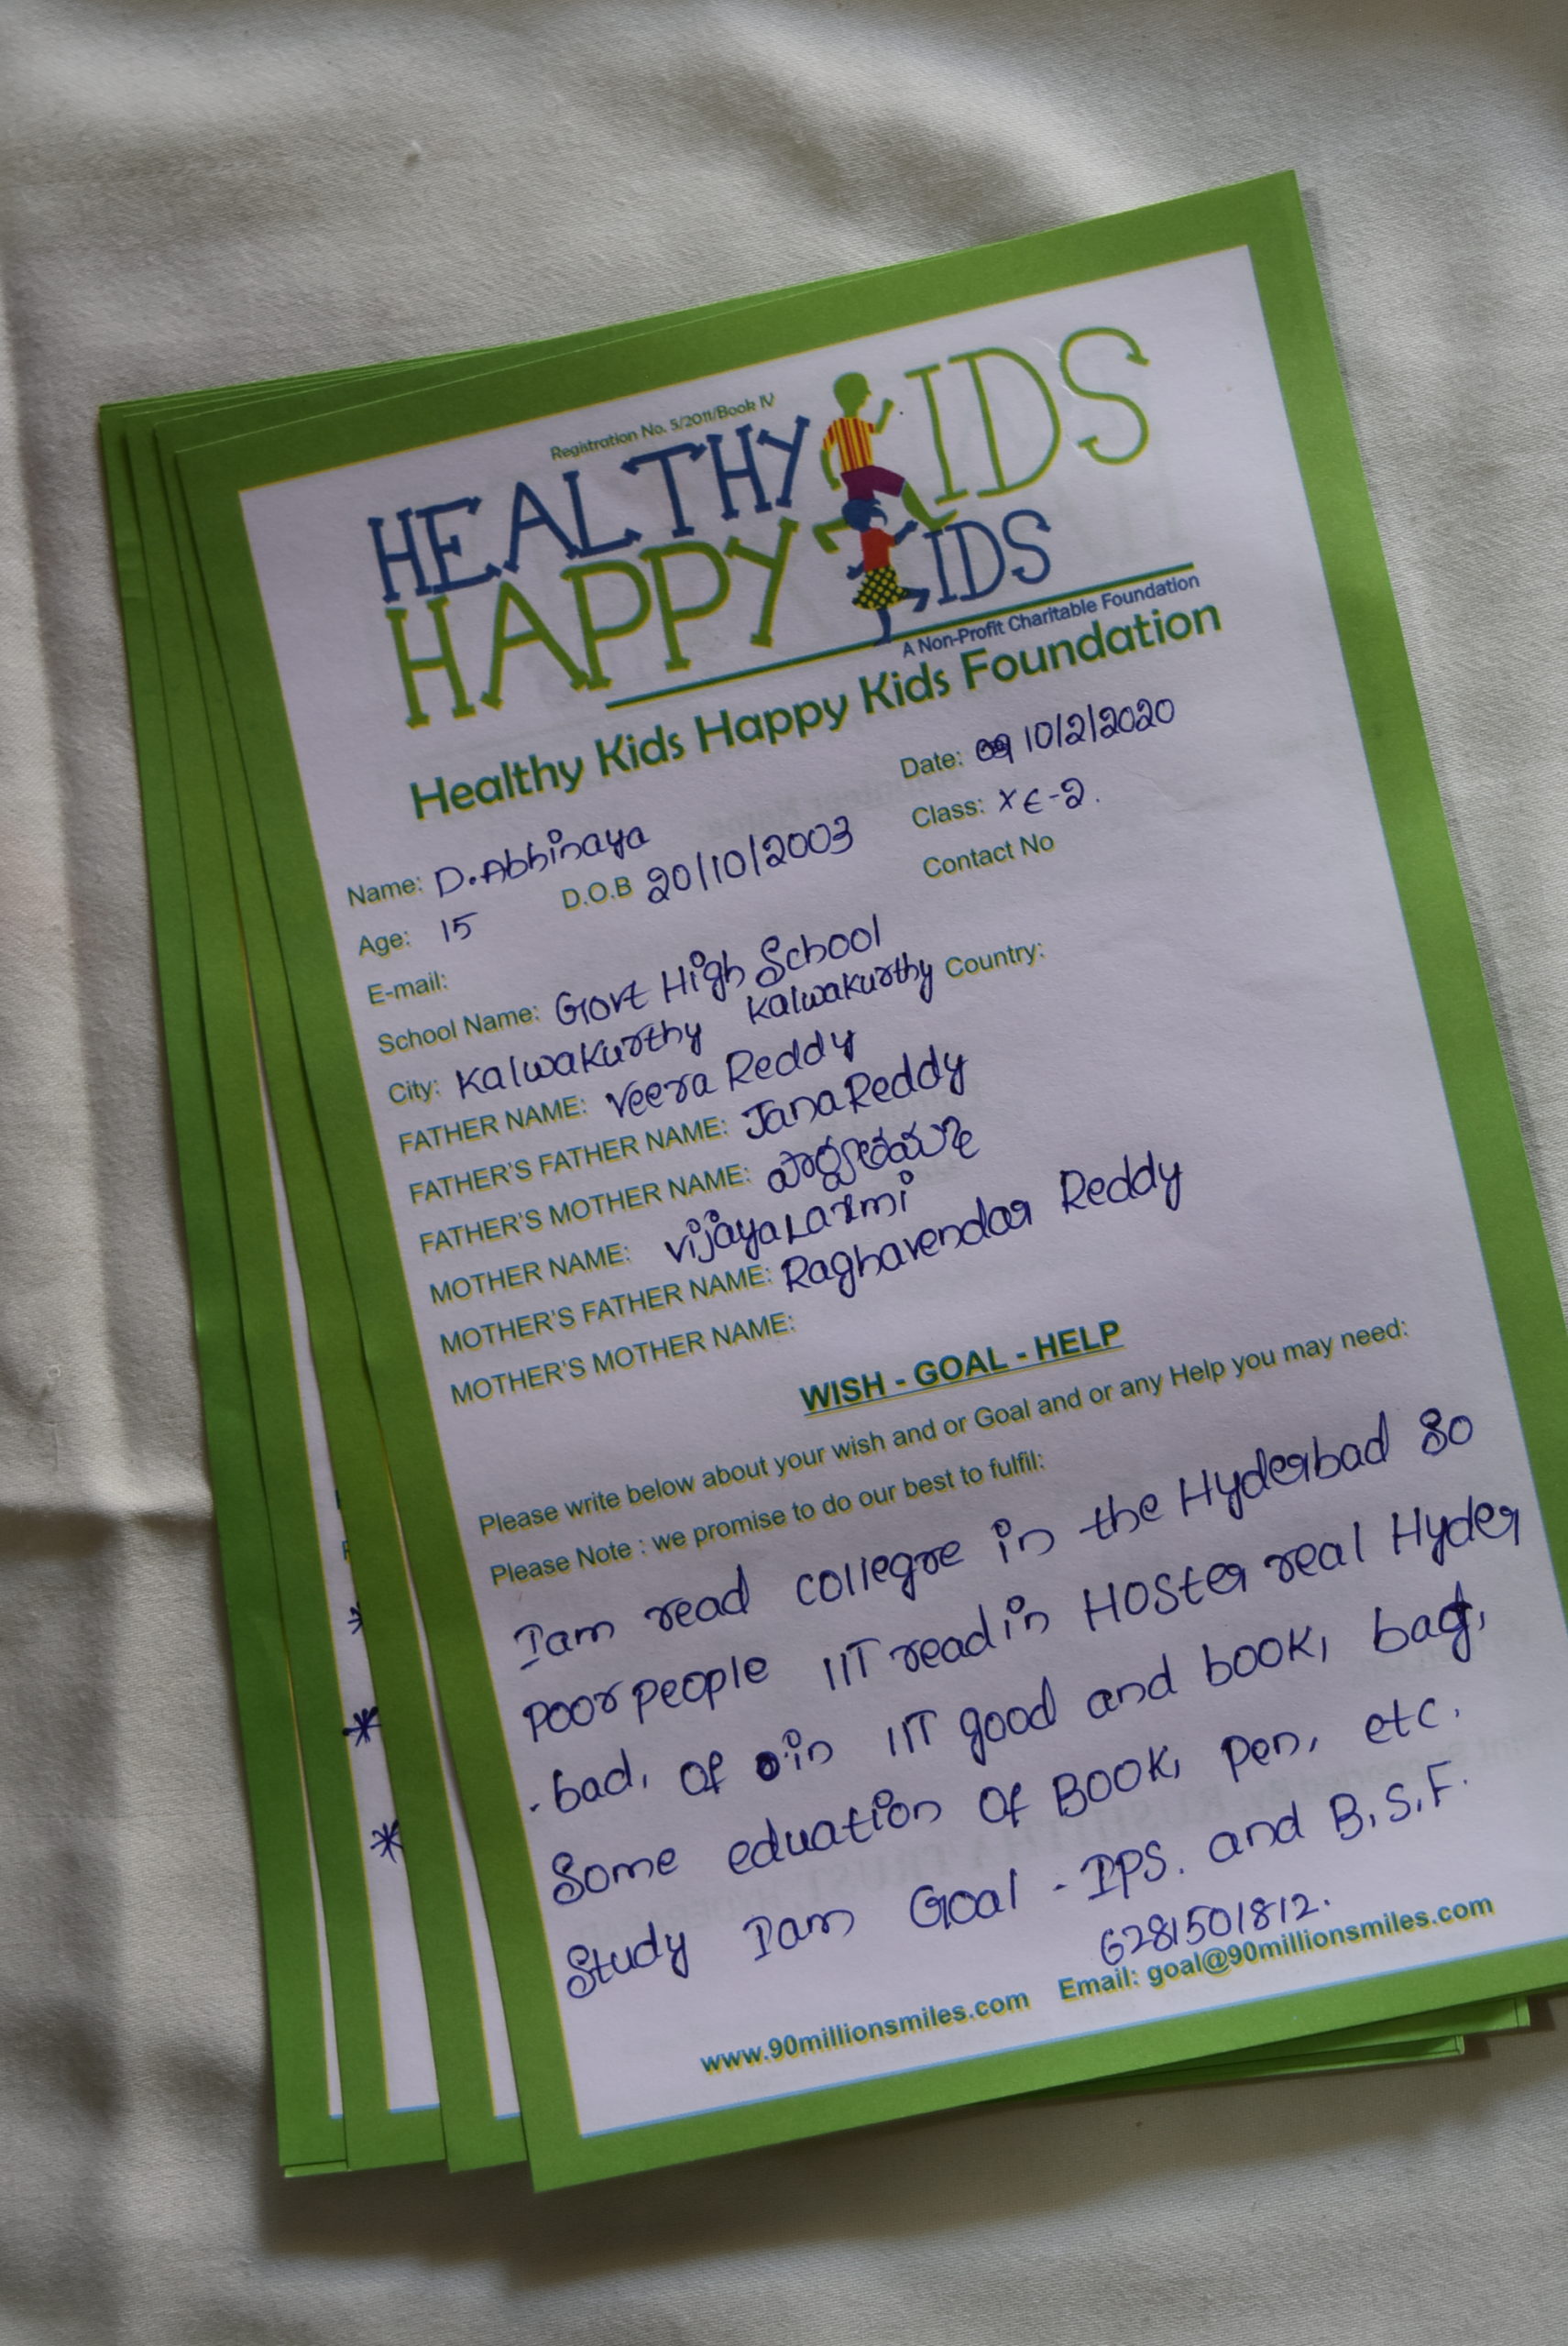 Registration No. 5/2011/Book IV
HEALTHY KIDS
HAPPY KIDS
A Non-Profit Charitable Foundation
Healthy Kids Happy Kids Foundation
Date: 10/2/2020
Name: D.Abhinaya
Class: X E-2.
Age: 15 D.O.B 20/10/2003
Contact No
E-mail:
School Name: Govt High School
Kalwakurthy
City: Kalwakurthy Country:
FATHER NAME: Veera Reddy
FATHER'S FATHER NAME: JanaReddy
FATHER'S MOTHER NAME:
MOTHER NAME: VijayaLaxmi
MOTHER'S FATHER NAME: Raghavendar Reddy
MOTHER'S MOTHER NAME:
WISH - GOAL - HELP
Please write below about your wish and or Goal and or any Help you may need:
Please Note : we promise to do our best to fulfil:
Iam read collegre in the Hyderbad So
poor people IIT read in Hoster real Hyder
.bad, of in IIT good and book, bag,
Some eduation of Book, pen, etc.
Study Iam Goal - IPS. and B.S.F.
6281501812.
www.90millionsmiles.com Email: goal@90millionsmiles.com